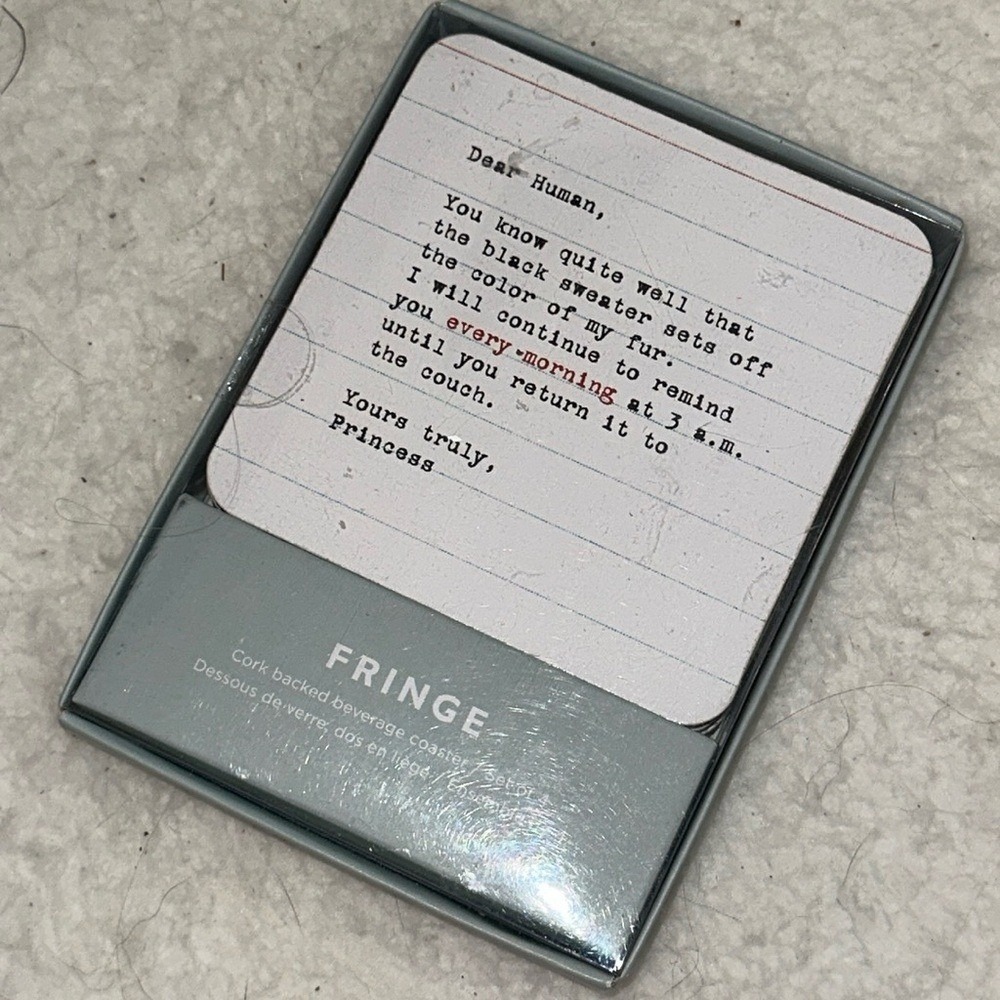 Dear Human,
You know quite well that
the black sweater sets off
the color of my fur.
I will continue to remind
you every morning at 3 a.m.
until you return it to
the couch.
Yours truly,
Princess
FRINGE
Cork backed beverage coaster / Set of
Dessous de verre, dos en liège / Ensemble